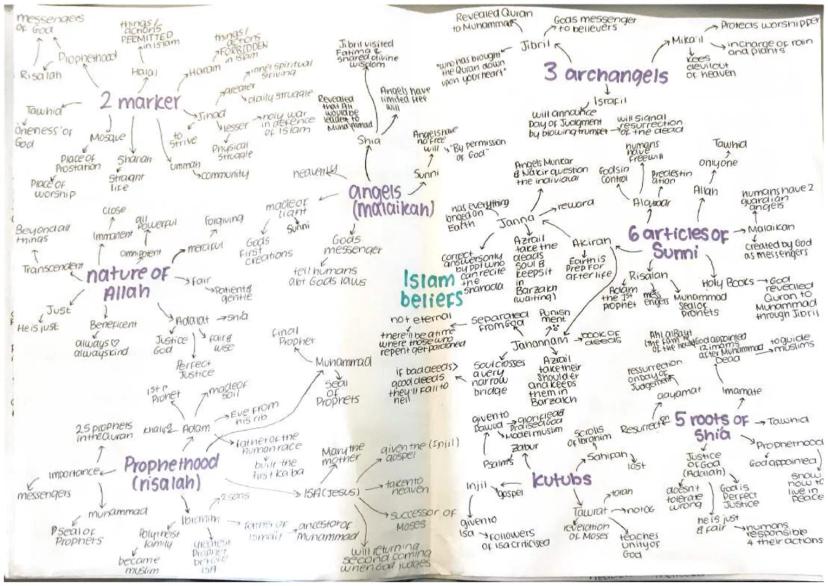 messengers
of God
Risalah
Prophethood
things/
actions
PERMITTED
in Islam
Halal
things/
actions
FORBIDDEN
in Islam
Haram
2 marker
Tawhid
Oneness of
God
Mosque
Place of
Prostration
Place of
worship
Shariah
Straight
life
ummah
community
to
strive
Jihad
greater
inner spiritual
striving
daily struggle
lesser
holy war
in defence
of Islam
Physical
struggle
Jibril visited
Fatima &
shared divine
wisdom
Revealed
that Ali
would be
leader to
Muhammad
Angels have
limited free
will
Shia
Angels have
no free
will
"By permission
of God"
Sunni
angels
(malaikah)
heavenly
made of
light
Sunni
Gods
First
creations
Gods
messenger
tell humans
abt Gods laws
nature of
Allah
Beyond all
things
Transcendent
close
Immanent
all
Powerful
omnipotent
forgiving
merciful
Fair
Patient &
gentle
Just
He is just
Beneficent
always
always kind
Adalat
Shia
Justice
God
fair &
wise
Perfect
Justice
Islam
beliefs
Prophethood
(risalah)
25 prophets
in the Quran
1st
Prophet
made of
soil
Adam
Eve from
his rib
father of the
human race
built the
first kaba
importance
messengers
muhammad
Seal of
Prophets
Ibrahim
2 sons
father of
Ismail
ancestor of
Muhammad
Polytheist
family
became
muslim
greatest
Prophet
before
ISA
final
Prophet
Muhammad
Seal
of
Prophets
ISA (Jesus)
Mary the
mother
given the (Injil)
gospel
taken to
heaven
successor of
Moses
will return
second coming
when God judges
3 archangels
Revealed Quran
to Muhammad
Gods messenger
to believers
Jibril
"who has brought
the Quran down
upon your heart"
Mika'il
Protects worshipper
in charge of rain
and plants
Kees
devil out
of heaven
Israfil
will announce
Day of Judgment
by blowing trumpet
will signal
resurrection
of the dead
6 articles of
Sunni
Angels Munkar
& Nakir question
the individual
God's in
control
humans
have
freewill
Predestin
ation
Alqadr
Tawhid
only one
Allah
humans have 2
guardian
angels
Malaikah
created by God
as messengers
Holy Books
God
revealed
Quran to
Muhammad
through Jibril
Risalah
Adam
the 1st
prophet
mess
engers
Muhammad
seal of
Prophets
Akirah
Earth is
Prep for
afterlife
Janna
reward
not everything
longed on
Earth
correct
answers only
by ppl who
can recite
the
shahada
Azrail
take the
deads
soul &
keeps it
in
Barzakh
(waiting)
Jahannam
Punish
ment
Separated
from God
not eternal
there'll be a time
where those who
repent get pardoned
book of
deeds
Soul crosses
a very
narrow
bridge
if bad deeds>
good deeds
they'll fall to
hell
Azrail
take their
shoulder
and keeps
them in
Barzakh
5 roots of
Shia
God appointed
12 imams
after Muhammad
Dead
to guide
muslims
Imamate
resurrection
on day of
Judgement
Resurrection
Tawhid
Prophethood
God appointed
show
how to
live in
peace
Justice
of God
(Adalah)
doesn't
tolerate
wrong
God is
Perfect
Justice
he is just
& fair
humans
responsible
4 their actions
kutubs
given to
Dawud
Psalms
Zabur
Scrolls
of Ibrahim
Sahifah
lost
Injil
gospel
given to
Isa
followers
of isa criticised
Tawrat
torah
revelation
of Moses
teaches
unity of
God